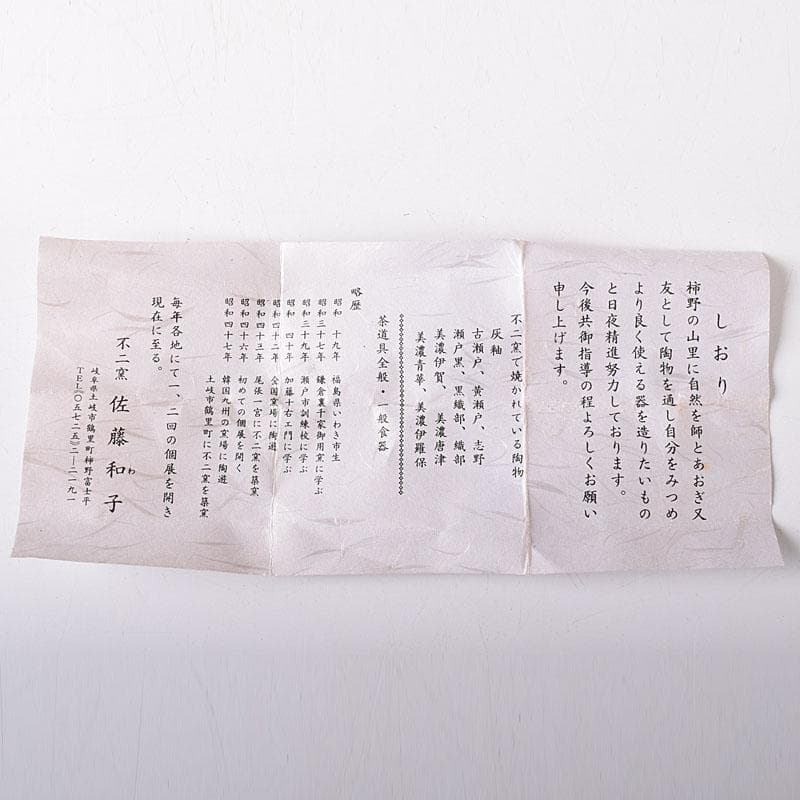 しおり
柿野の山里に自然を師とあおぎ又
友として陶物を通し自分をみつめ
より良く使える器を造りたいもの
と日夜精進努力しております。
今後共御指導の程よろしくお願い
申し上げます。
不二窯で焼かれている陶物
灰釉
古瀬戸、黄瀬戸、志野
瀬戸黒、黒織部、織部
美濃伊賀、美濃唐津
美濃青華、美濃伊羅保
茶道具全般・一般食器
略歴
昭和 十九年 福島県いわき市生
昭和三十七年 鎌倉裏千家御用窯に学ぶ
昭和三十九年 瀬戸市訓練校に学ぶ
昭和 四十年 加藤十右エ門に学ぶ
昭和四十二年 全国窯場に陶遊
昭和四十三年 尾張一宮に不二窯を築窯
昭和四十六年 初めての個展を開く
昭和四十七年 韓国九州の窯場に陶遊
土岐市鶴里町に不二窯を築窯
毎年各地にて一、二回の個展を開き
現在に至る。
不二窯 佐藤和子
わ
岐阜県土岐市鶴里町柿野富士平
TEL(〇五七二五)二―二一九一